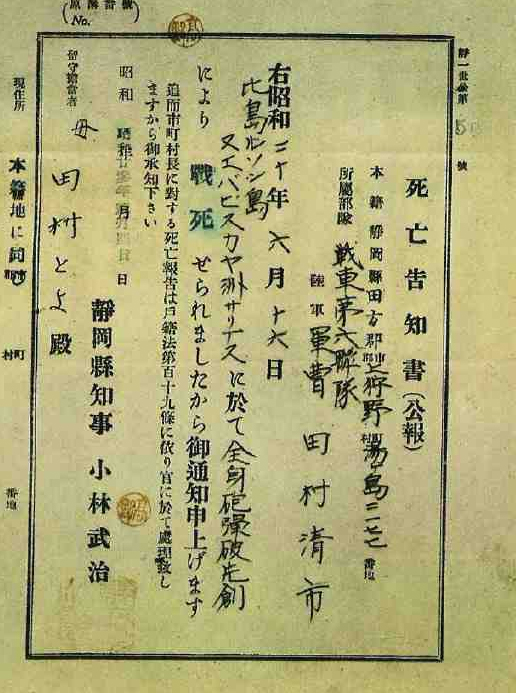 原簿番號
No.
靜一世公第 號
死亡告知書（公報）
本籍 靜岡縣田方郡上狩野村湯ヶ島二七 番地
所屬部隊 戰車第六聯隊
陸軍軍曹 田村清市
右昭和二十年六月十六日
比島ルソン島
ヌエバビスカヤ洲サリナスに於て全身砲彈破片創
により 戰死 せられましたから御通知申上げます
追而市町村長に對する死亡報告は戸籍法第百十九條に依り官に於て處理致し
ますから御承知下さい
昭和 年 月 日
靜岡縣知事 小林武治
留守擔當者
母 田村とよ殿
現住所
本籍地に同じ
町
村
番地